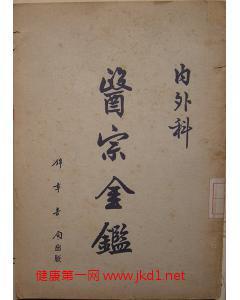 内外科
醫宗金鑑
錦章書局出版
健康第一网 www.jkd1.net